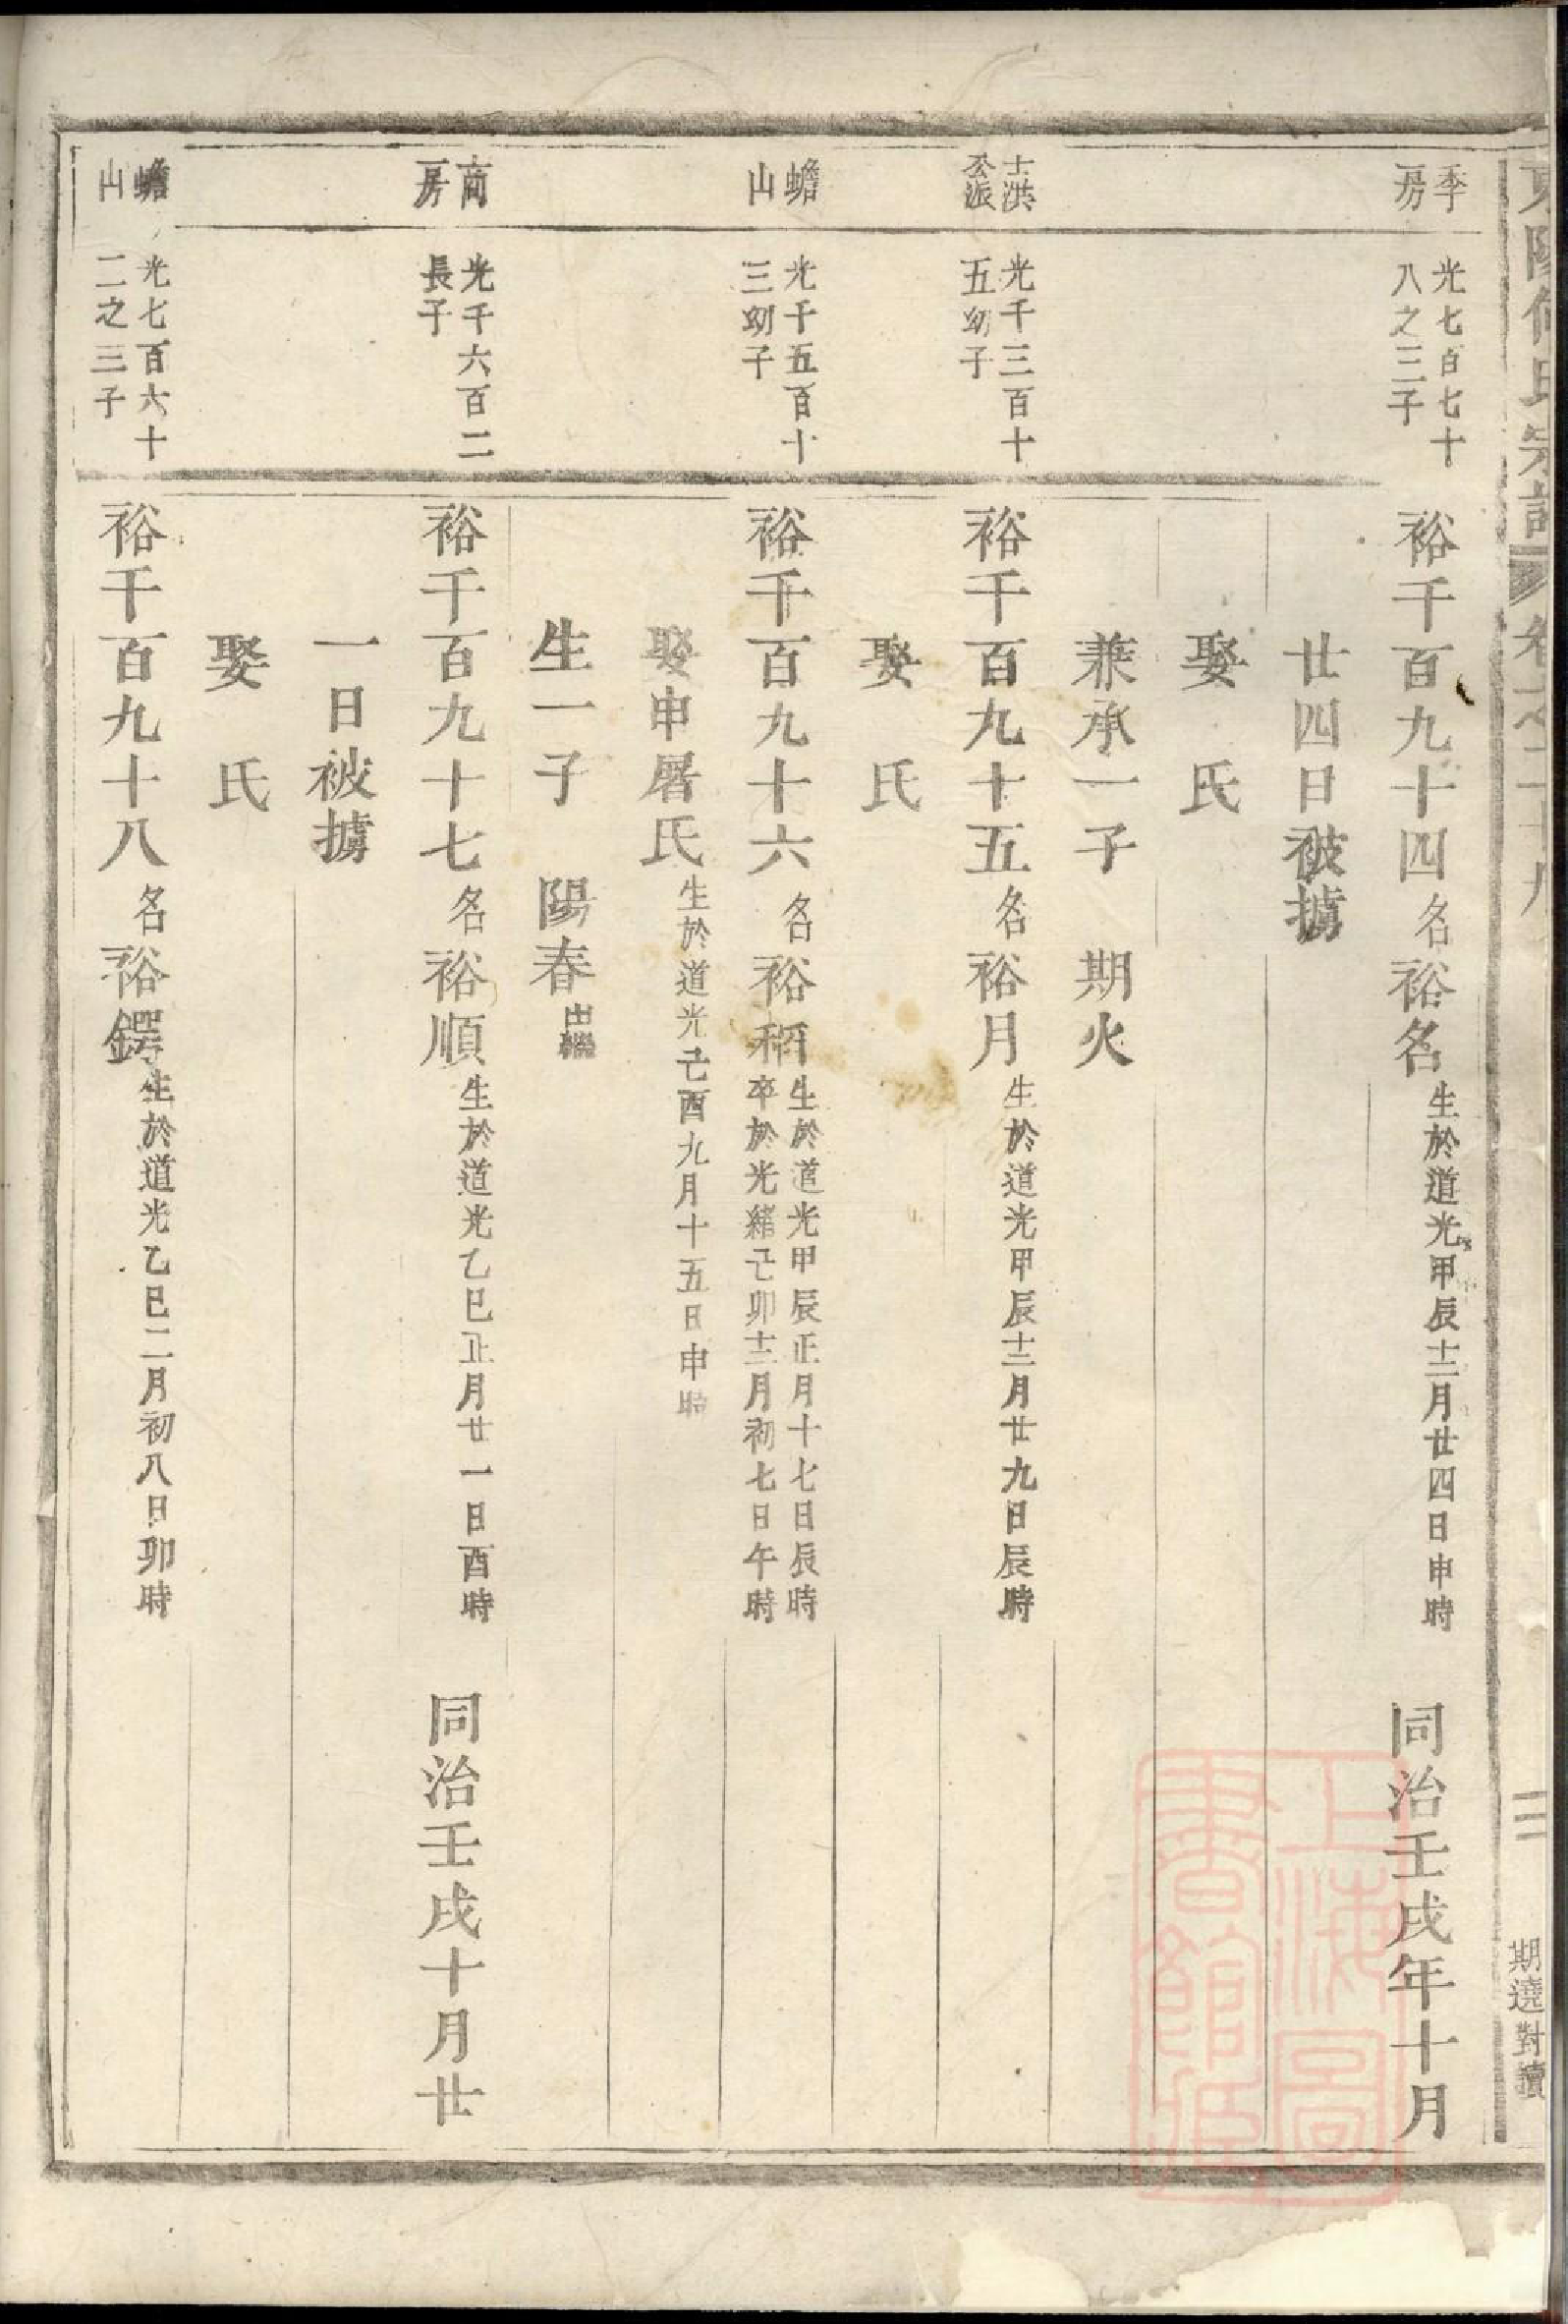 期遶對讀
季房
光七百七十八之三子
裕千百九十四名裕名生於道光甲辰十二月廿四日申時 同治壬戌年十月
廿四日被擄
娶 氏
兼承一子 期火
士洪公派
光千三百十五幼子
裕千百九十五名裕月生於道光甲辰十二月廿九日辰時
娶 氏
蟾山
光千五百十三幼子
裕千百九十六名裕稱生於道光甲辰正月十七日辰時
卒於光緒己卯十二月初七日午時
娶申屠氏生於道光己酉九月十五日申時
生一子 陽春出繼
商房
光千六百二長子
裕千百九十七名裕順生於道光乙巳正月廿一日酉時 同治壬戌十月廿
一日被擄
娶 氏
蟾山
光七百六十二之三子
裕千百九十八名裕鍔生於道光乙巳二月初八日卯時
上海圖書館藏